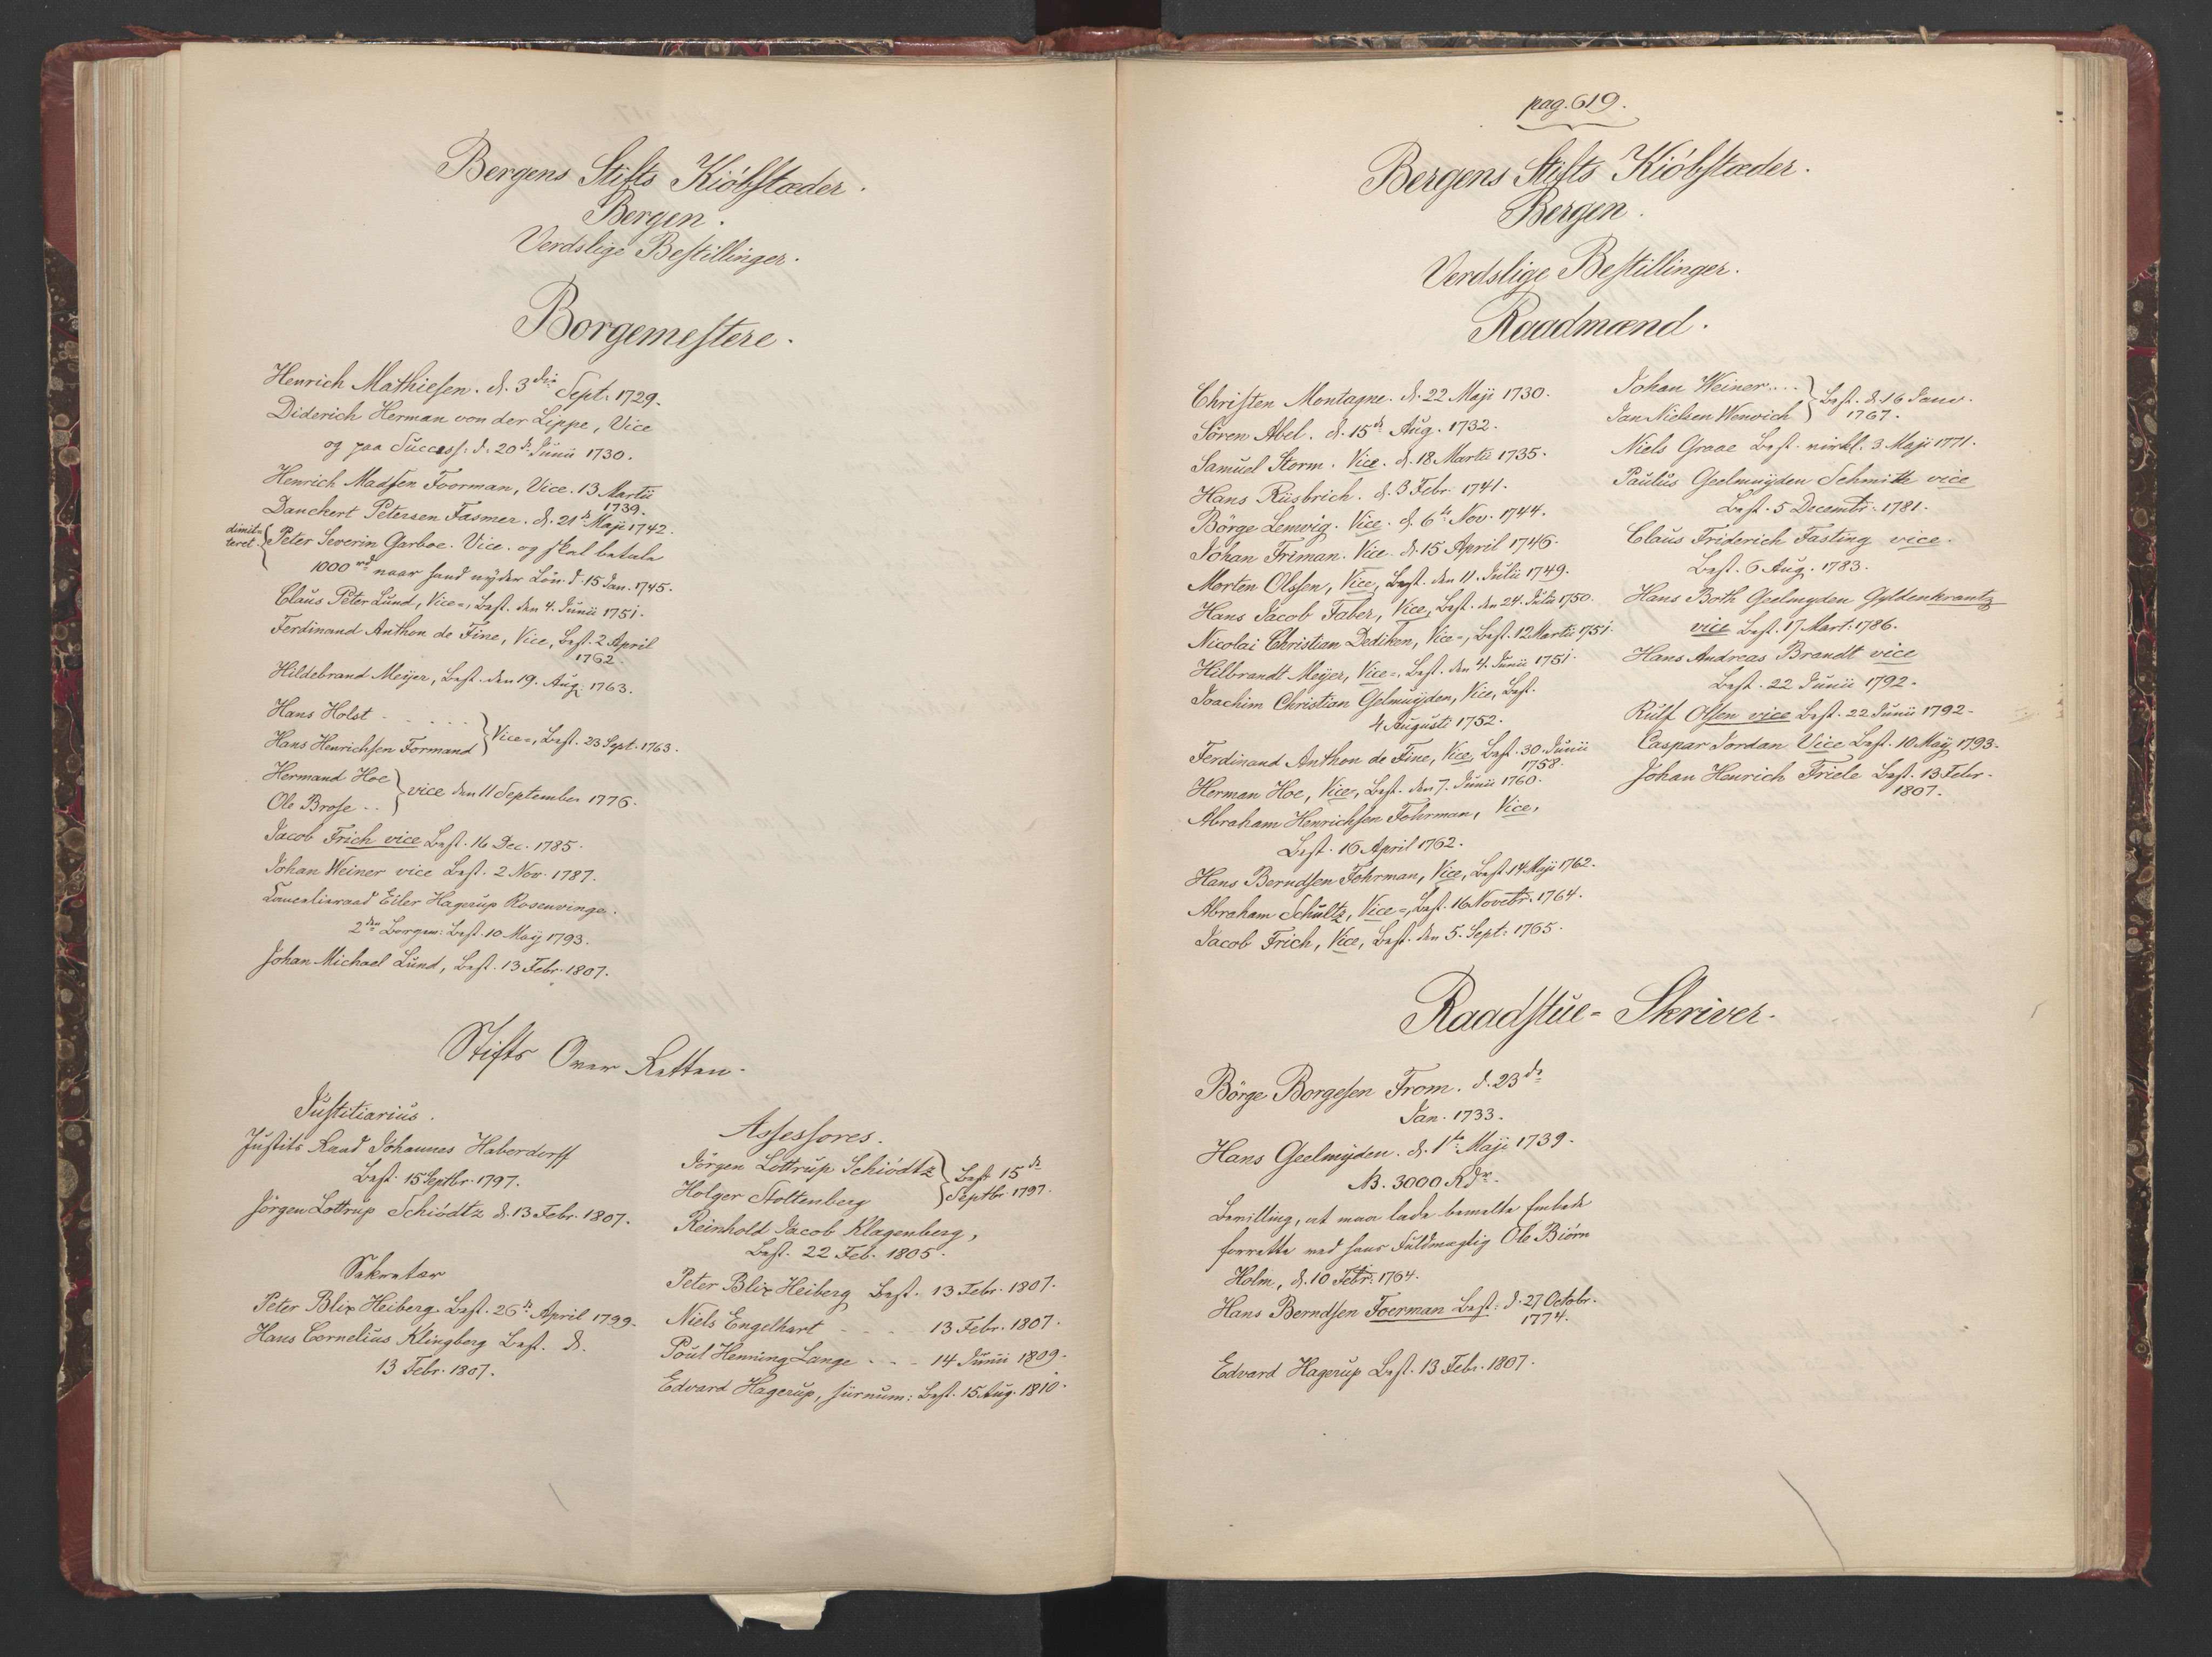 Bergens Stifts Kiöbstæder.
Bergen.
Verdslige Bestillinger.
Borgemestere.
Henrich Mathiesen. d. 3die Sept. 1729.
Diderich Herman von der Lippe, Vice
og paa Success: d. 20de Junii 1730.
Henrich Madsen Foorman, Vice. 13 Martii
1739.
Danckert Petersen Fasmer. d. 21de Maji 1742.
dimit-
teret. Peter Severin Garboe. Vice. og skal betale
1000 rd naar hand nyder Lön. d. 15 Jan. 1745.
Claus Peter Lund, Vice=, Best. den 4. Junii 1751.
Ferdinand Anthon de Fine, Vice, Best. 2 April
1762.
Hildebrand Meyer, Best. den 19. Aug. 1763.
Hans Holst - - - - -
Hans Henrichsen Formand } Vice=, Best. 23 Sept. 1763.
Hermand Hoe
Ole Brose . . } vice den 11 September 1776.
Jacob Frich vice Best. 16 Dec. 1785.
Johan Weiner vice Best. 2 Nov. 1787.
Cancelieraad Eiler Hagerup Rosenvinge.
2den Borgem: Best. 10 Maÿ 1793.
Johan Michael Lund, Best. 13 Febr. 1807.
Stifts Over Retten.
Justitiarius.
Justits Raad Johannes Haberdorff
Best. 15 Septbr. 1797.
Jörgen Lottrup Schiödtz d. 13 Febr. 1807.
Sekretær
Peter Blix Heiberg Best. 26de April 1799.
Hans Cornelius Klingberg Best. d.
13 Febr. 1807.
Assessores.
Jörgen Lottrup Schiödtz
Holger Stoltenberg } Best 15de
Septbr. 1797.
Reinhold Jacob Klagenberg,
Best. 22 Feb. 1805.
Peter Blix Heiberg Best. 13 Febr. 1807.
Niels Engelhart - - - 13 Febr. 1807.
Poul Henning Lange - - - 14 Junii 1809.
Edvard Hagerup, surnum: Best. 15 Aug. 1810.
pag. 619.
Bergens Stifts Kiöbstæder.
Bergen.
Verdslige Bestillinger.
Raadmænd.
Christen Montagne. d. 22 Maji 1730.
Sören Abel. d. 15de Aug. 1732.
Samuel Storm. Vice. d. 18 Martii 1735.
Hans Riisbrich. d. 3 Febr. 1741.
Börge Lemvig. Vice. d. 6te Nov. 1744.
Johan Friman. Vice. d. 15 April 1746.
Morten Olssen, Vice, Best. den 11. Julii 1749.
Hans Jacob Faber, Vice, Best. den 24. Julii 1750.
Nicolai Christian Dediken, Vice=, Best. 12 Martii 1751.
Hilbrandt Meyer, Vice=, Best. den 4. Junii 1751.
Joachim Christian Gelmuyden, Vice, Best.
4 Augusti 1752.
Ferdinand Anthon de Fine, Vice, Best. 30. Junii
1758.
Herman Hoe, Vice=, Best. den 7. Junii 1760.
Abraham Henrichsen Fohrman, Vice,
Best. 16 April 1762.
Hans Berndsen Fohrman, Vice, Best. 14 Maji 1762.
Abraham Schultz, Vice=, Best. 16 Novebr. 1764.
Jacob Frich, Vice, Best. den 5. Sept: 1765.
Johan Weiner. . . .
Jan Nielsen Wenwich } Best. d. 16 Janv.
1767.
Niels Graae Best. virkl. 3 Maji 1771.
Paulus Geelmuyden Schmitte vice
Best. 5 Decembr. 1781.
Claus Friderich Fasting vice.
Best. 6 Aug. 1783.
Hans Both Geelmyden Gyldenkrantz
vice Best. 17 Mart: 1786.
Hans Andreas Brandt vice
Best. 22 Junii 1792.
Rulf Olsen vice Best. 22 Junii 1792.
Caspar Jordan Vice Best. 10 Maÿ 1793.
Johan Henrich Friele Best. 13 Febr.
1807.
Raadstue-Skriver.
Börge Borgesen From. d. 23de
Jan. 1733.
Hans Geelmyden. d. 1te Maji 1739.
NB. 3000 Rdr.
Bevilling, at maa lade bemelte Embede
forrette ved hans Fuldmægtig Ole Biörn
Holm, d. 10 Febr: 1764.
Hans Berndsen Foerman Best: d. 27 Octobr.
1774.
Edvard Hagerup Best. 13 Febr. 1807.